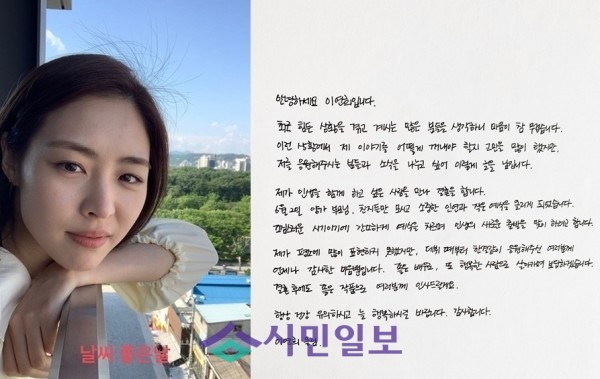 안녕하세요 이연희입니다.
최근 힘든 상황을 겪고 계시는 많은 분들을 생각하니 마음이 참 무겁습니다.
이런 상황에서 제 이야기를 어떻게 꺼내야 할지 고민을 많이 했지만,
저를 응원해주시는 분들과 소식을 나누고 싶어 이렇게 글을 남깁니다.
제가 인생을 함께 하고 싶은 사람을 만나 결혼을 합니다.
6월 2일 양가 부모님, 친지들만 모시고 소중한 인연과 작은 예식을 올리게 되었습니다.
조심스러운 시기이기에 간소하게 예식을 치르며 인생의 새로운 출발을 맞이 하려고 합니다.
제가 평소에 많이 표현하지 못했지만, 데뷔 때부터 한결같이 응원해주신 여러분께
언제나 감사한 마음뿐입니다. 좋은 배우로, 또 행복한 사람으로 살아가며 보답하겠습니다.
결혼 후에도 좋은 작품으로 여러분께 인사드릴게요.
항상 건강 유의하시고 늘 행복하시길 바랍니다. 감사합니다.
이연희
날씨 좋은날
시민일보